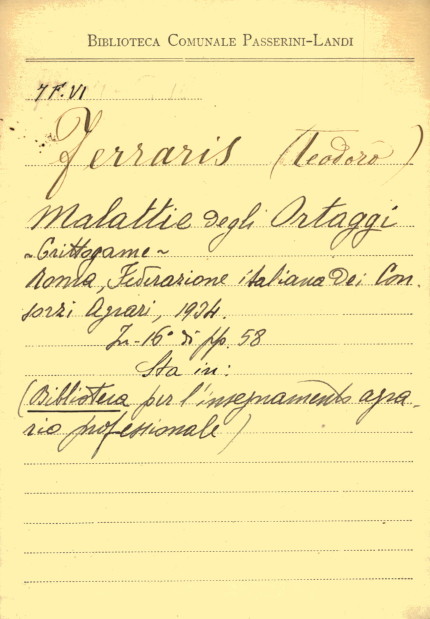 BIBLIOTECA COMUNALE PASSERINI-LANDI
7 F. VI
Ferraris (Teodoro)
Malattie degli Ortaggi
~ Crittogame ~
Roma, Federazione italiana dei Con-
sorzi Agrari, 1934.
In-16° di pp. 58
Sta in:
(Biblioteca per l'insegnamento agra-
rio professionale)